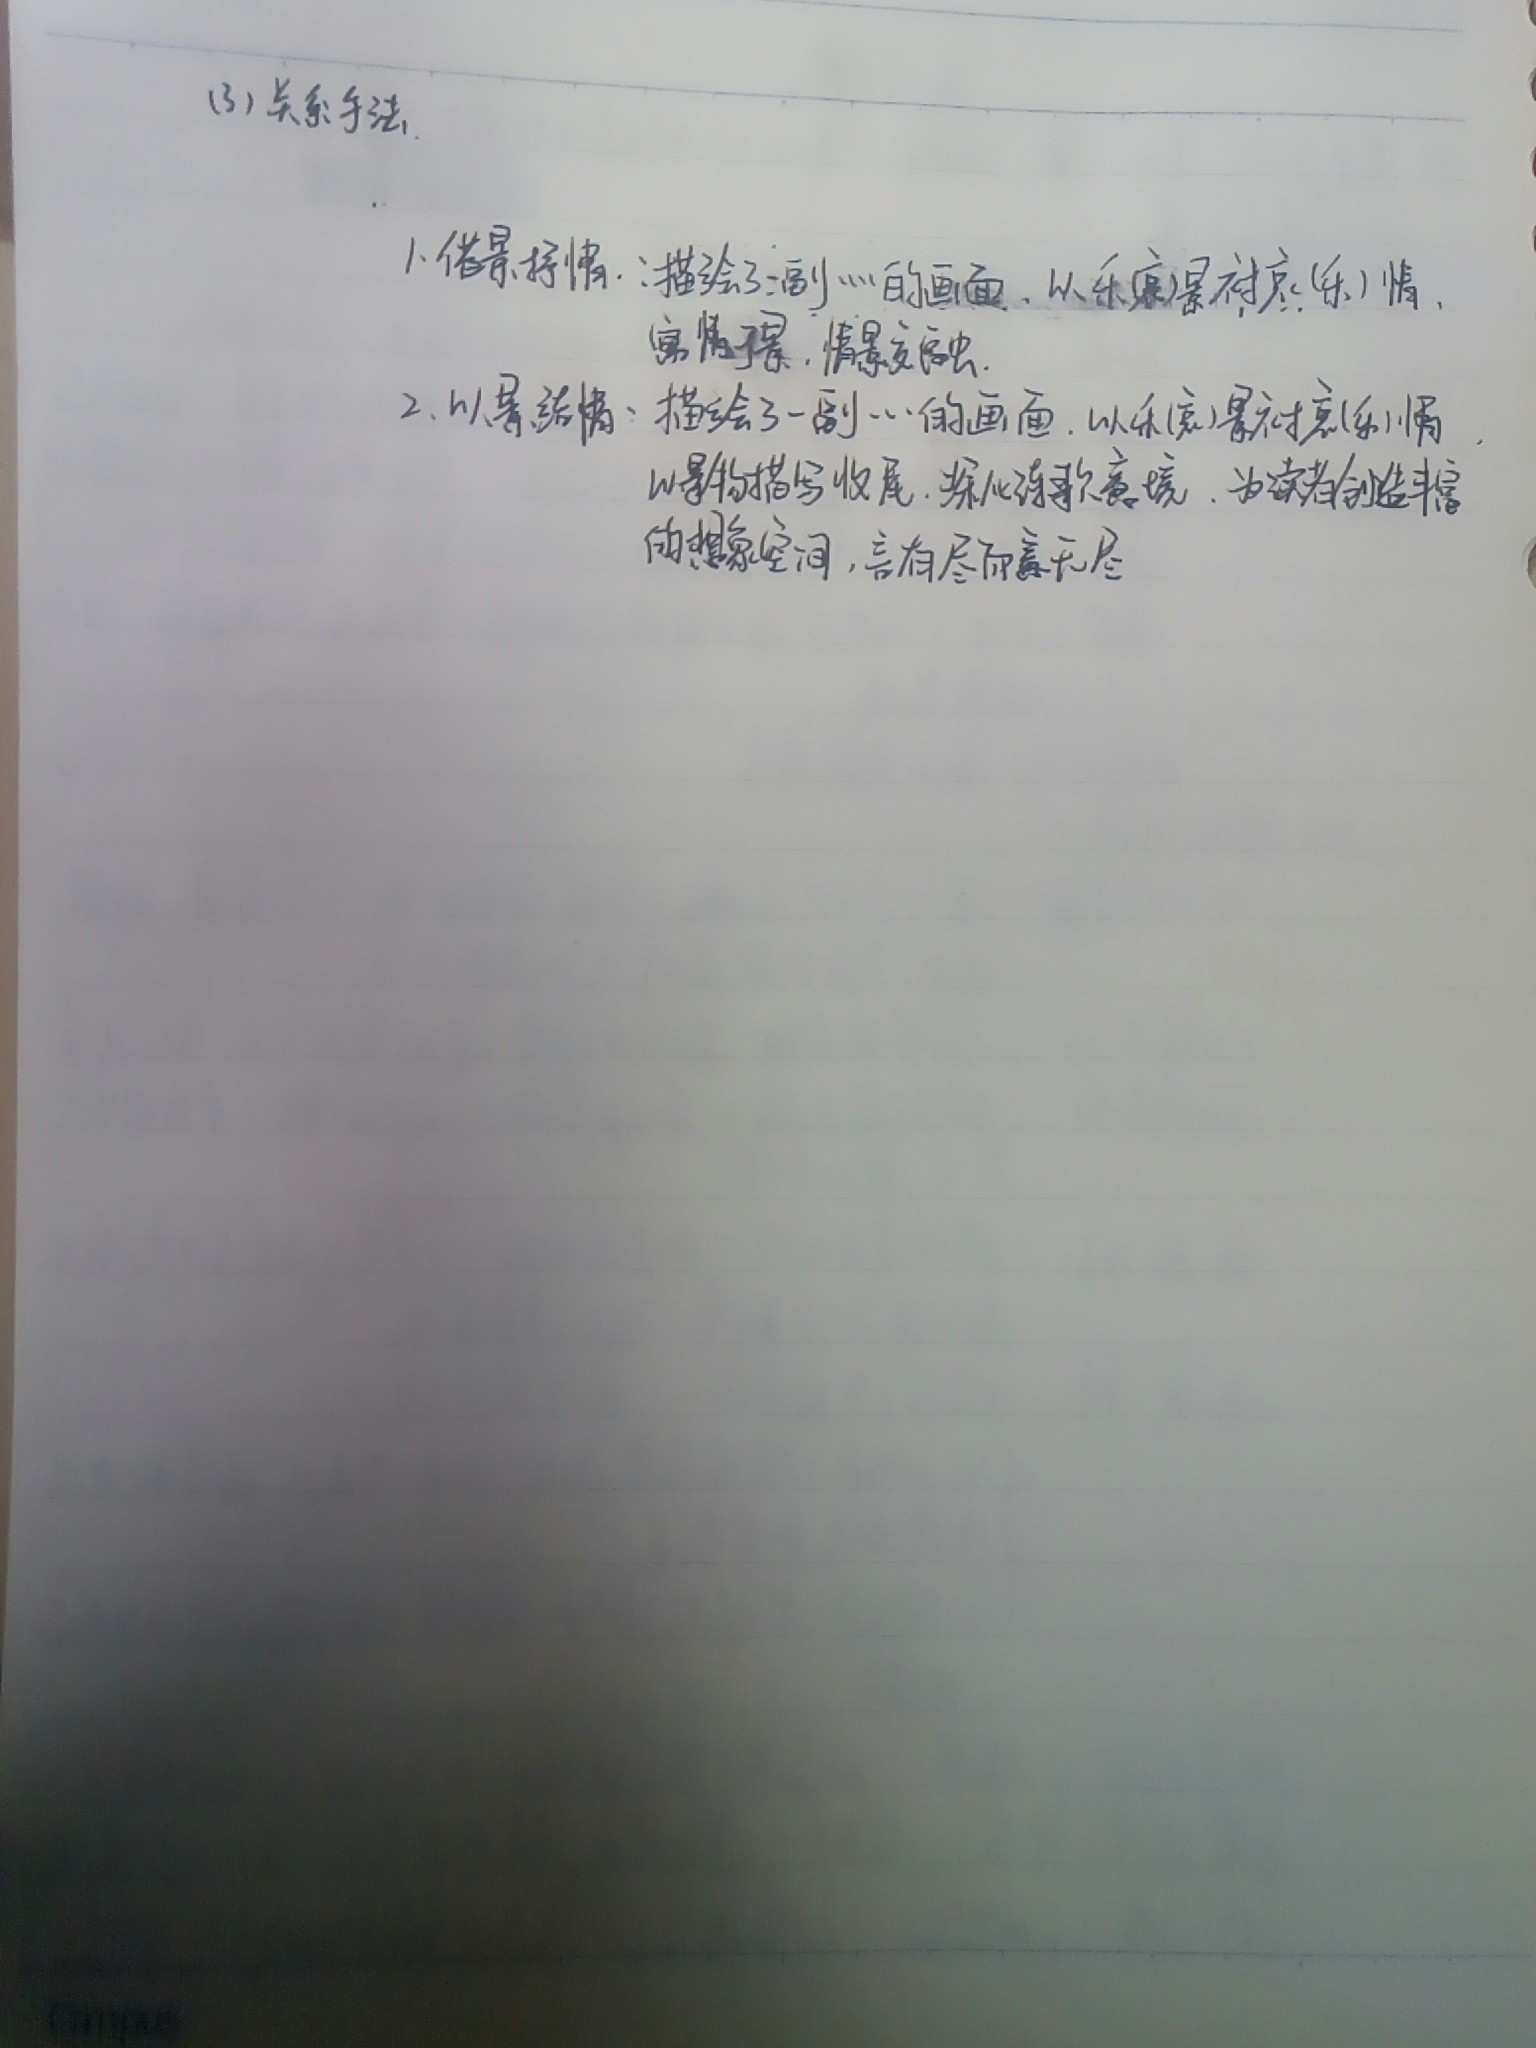 (3) 关系手法.
1. 借景抒情: 描绘了一副……的画面, 以乐(哀)景衬哀(乐)情,
寓情于景, 情景交融.
2. 以景结情: 描绘了一副……的画面, 以乐(哀)景衬哀(乐)情,
以景物描写收尾, 深化诗歌意境, 为读者创造丰富
的想象空间, 言有尽而意无尽